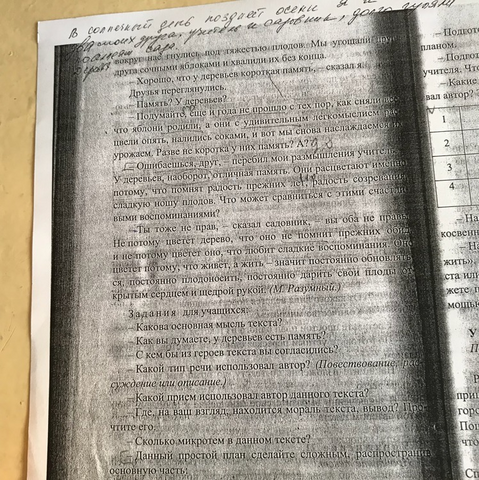 В солнечный день поздней осени я и
двоих друга, учитель и садовник, долго гуляли
сада.
вокруг нас гнулись под тяжестью плодов. Мы угощали друг
друга сочными яблоками и хвалили их без конца.
– Хорошо, что у деревьев короткая память, – сказал я.
Друзья переглянулись.
– Память? У деревьев?
– Подумайте, еще и года не прошло с тех пор, как сняли
что яблони родили, а они с удивительным легкомыслием
цвели опять, налились соками, и вот мы снова наслаждаемся
урожаем. Разве не коротка у них память? А?
– Ошибаешься, друг, – перебил мои размышления учитель.
У деревьев, наоборот, отличная память. Они расцветают именно
потому, что помнят радость прежних лет, радость созревания,
сладкую ношу плодов. Что может сравниться с этими счастли-
выми воспоминаниями?
– Ты тоже не прав, – сказал садовник, – вы оба не правы.
Не потому цветет дерево, что оно не помнит прежних
и не потому цветет оно, что любит сладкие воспоминания. Оно
цветет потому, что живет, а жить – значит постоянно обновлять-
ся, постоянно плодоносить, постоянно дарить свои плоды с
крытым сердцем и щедрой рукой. (М. Разумный.)
Задания для учащихся:
– Какова основная мысль текста?
– Как вы думаете, у деревьев есть память?
– С кем бы из героев текста вы согласились?
– Какой тип речи использовал автор? (Повествование, рас-
суждение или описание.)
– Какой прием использовал автор данного текста?
– Где, на ваш взгляд, находится мораль текста, вывод? Про-
чтите его.
– Сколько микротем в данном тексте?
– Данный простой план сделайте сложным, распространив
основную часть.
– Подгото
планом.
– Подго
учителя. Что
– Какие
вал автор?
1
2
3
4
– На
косвенн
– На
жить».
ста или
жете п
мощь
У
П
Р
при
горо
Поц
что
Сп